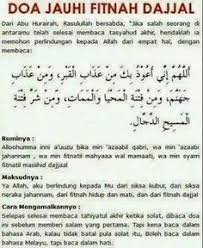 DOA JAUHI FITNAH DAJJAL
Dari Abu Hurairah, Rasulullah bersabda, "Jika salah seorang di
antaramu telah selesai membaca tasyahud akhir, hendaklah ia
memohon perlindungan kepada Allah dari empat hal, dengan
membaca:
اَللَّهُمَّ إِنِّي أَعُوْذُ بِكَ مِنْ عَذَابِ الْقَبْرِ، وَمِنْ عَذَابِ
جَهَنَّمَ، وَمِنْ فِتْنَةِ الْمَحْيَا وَالْمَمَاتِ، وَمِنْ شَرِّ فِتْنَةِ
الْمَسِيْحِ الدَّجَّالِ.
Ruminya :
Alloohumma inni a'uuzu bika min 'azaabil qabri, wa min 'azaabi
jahannam, wa min fitnatil mahyaa wal mamaati, wa min syarri
fitnatil masiihid dajjaal
Maksudnya :
Ya Allah, aku berlindung kepada Mu dari siksa kubur, dari siksa
neraka jahannam, dari fitnah hidup dan mati, dan dari fitnah dajjal
Cara Mengamalkannya :
Selepas selesai membaca tahiyatul akhir ketika solat, dibaca doa
ini sebelum memberi salam yang pertama. Tapi kena baca dalam
bahasa Arab, kalau tidak batal pula solat tu. Diluar solat, boleh
baca dalam bahasa Melayu, tapi baca dalam hati.